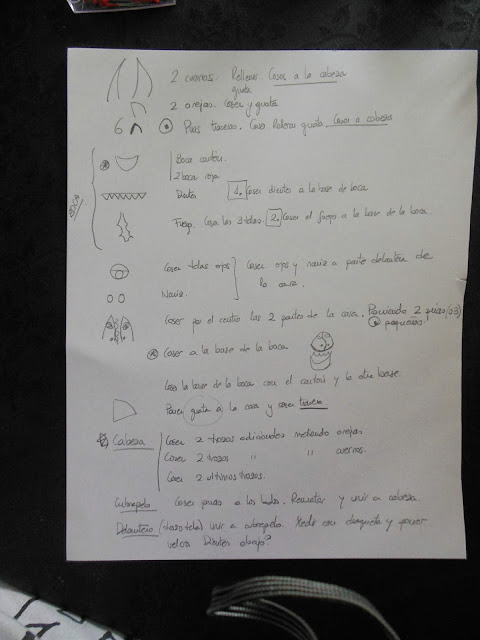 2 cuernos. Rellenar. Coser a la cabeza
guata
2 orejas. Coser y guata
6 Púas traseras. Coser Rellenar guata. Coser a cabeza
BOCA
Boca cartón.
2 boca roja
Dientes 1. Coser dientes a la base de boca
Fuego. Cosa las 3 telas. 2. Coser el fuego a la base de la boca
Coser telas ojos
Coser ojos y nariz a parte delantera de
la cara.
Nariz.
Coser por el centro las 2 partes de la cara. Poniendo 2 púas (ó3)
pequeñas.
Coser a la base de la boca
Cosa la base de la boca con el cartón y la otra base.
Poner guata a la cara y coser trasera
Cabeza
Coser 2 trozos adicionales metiendo orejas
Coser 2 trozos " " cuernos.
Coser 2 últimos trozos.
Cubrepelo Coser púas a los lados. Rematar y unir a cabeza.
Delantero (trozo tela) unir a cubrepelo. Medir con chaqueta y poner
velcro Dientes abajo?